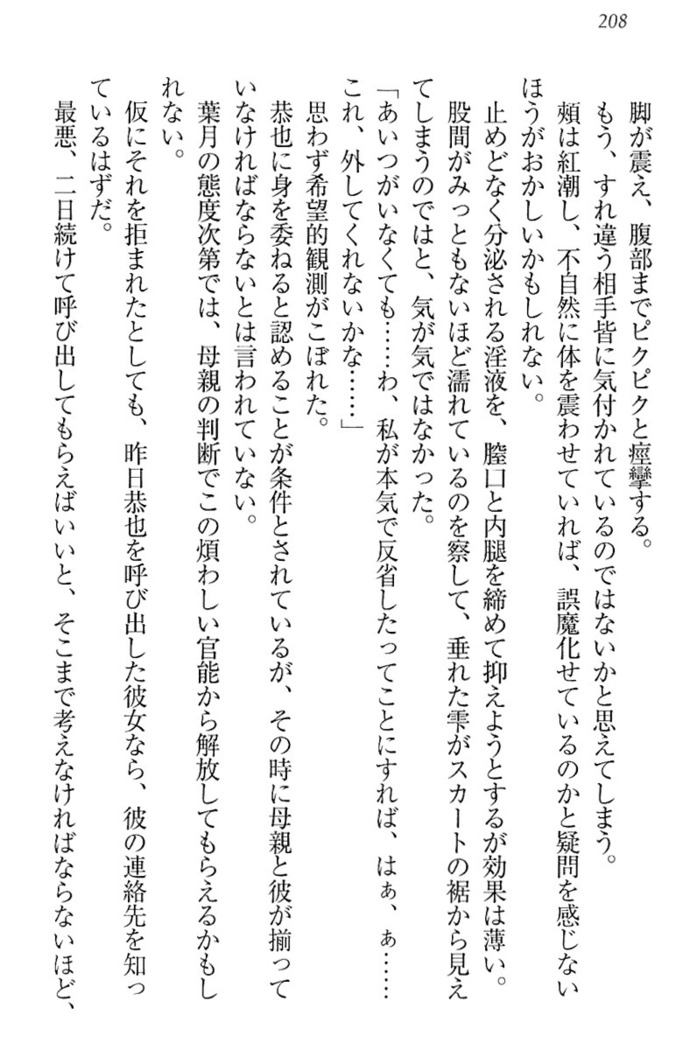 208
脚が震え、腹部までピクピクと痙攣する。
もう、すれ違う相手皆に気付かれているのではないかと思えてしまう。
頬は紅潮し、不自然に体を震わせていれば、誤魔化せているのかと疑問を感じない
ほうがおかしいかもしれない。
止めどなく分泌される淫液を、膣口と内腿を締めて抑えようとするが効果は薄い。
股間がみっともないほど濡れているのを察して、垂れた雫がスカートの裾から見え
てしまうのではと、気が気ではなかった。
「あいつがいなくても……わ、私が本気で反省したってことにすれば、はぁ、ぁ……
これ、外してくれないかな……」
思わず希望的観測がこぼれた。
恭也に身を委ねると認めることが条件とされているが、その時に母親と彼が揃って
いなければならないとは言われていない。
葉月の態度次第では、母親の判断でこの煩わしい官能から解放してもらえるかもし
れない。
仮にそれを拒まれたとしても、昨日恭也を呼び出した彼女なら、彼の連絡先を知っ
ているはずだ。
最悪、二日続けて呼び出してもらえばいいと、そこまで考えなければならないほど、